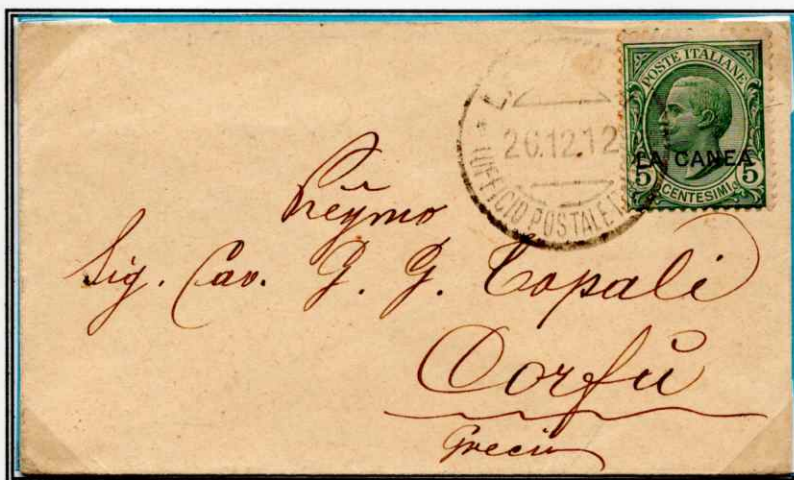 POSTE ITALIANE
LA CANEA
5 5
CENTESIMI
26.12.12
UFFICIO POSTALE
Preg̃mo
Sig. Cav. G. G. Topali
Corfù
Grecia